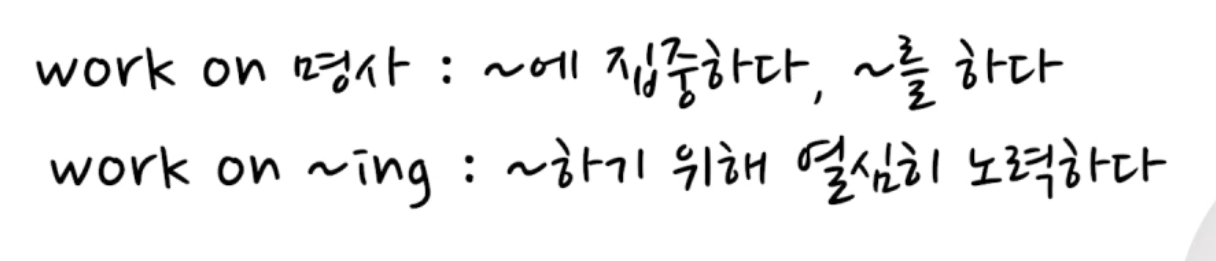 work on 명사 : ~에 집중하다, ~를 하다
work on ~ing : ~하기 위해 열심히 노력하다